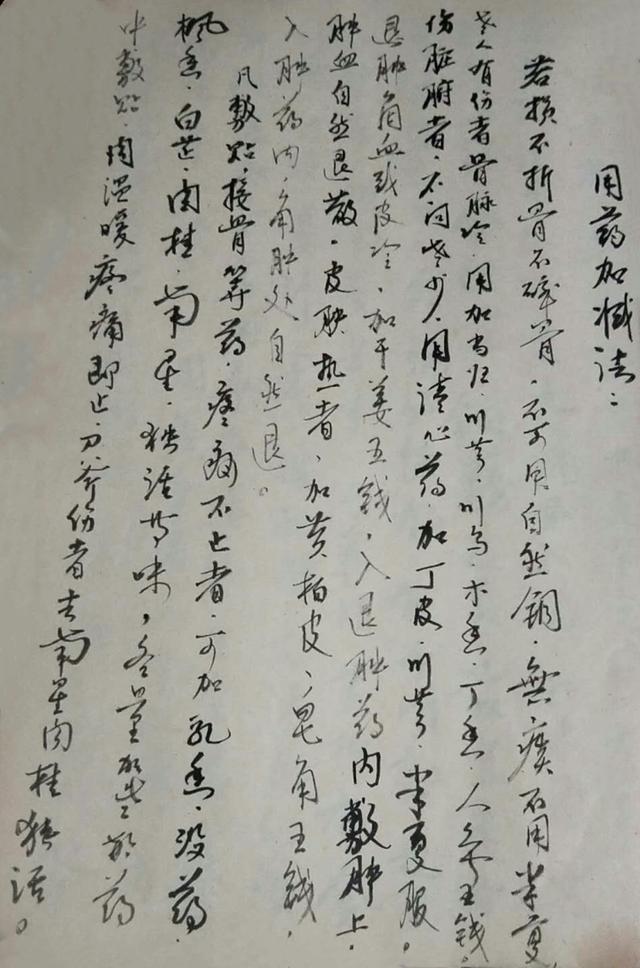 用药加减法：
若损不折骨不碎骨，不可用自然铜，無痰不用半夏
老人有伤者骨脉冷，用加当归，川芎，川乌，木香，丁香，人参五钱。
伤脏腑者，不问老少，用清心药，加丁皮，川芎，半夏服。
退肿，血或皮冷，加干姜五钱，入退肿药内敷肿上，
肿血自然退散，皮肤热者，加黄柏皮，皂角五钱，
入肿药内，肿处自然退。
凡敷贴，接骨等药，疼痛不止者，可加乳香，没药，
枫香，白芷，肉桂，南星，独活等味，各量些於药
中敷贴，肉温暖疼痛即止，刀斧伤者去南星肉桂独活。